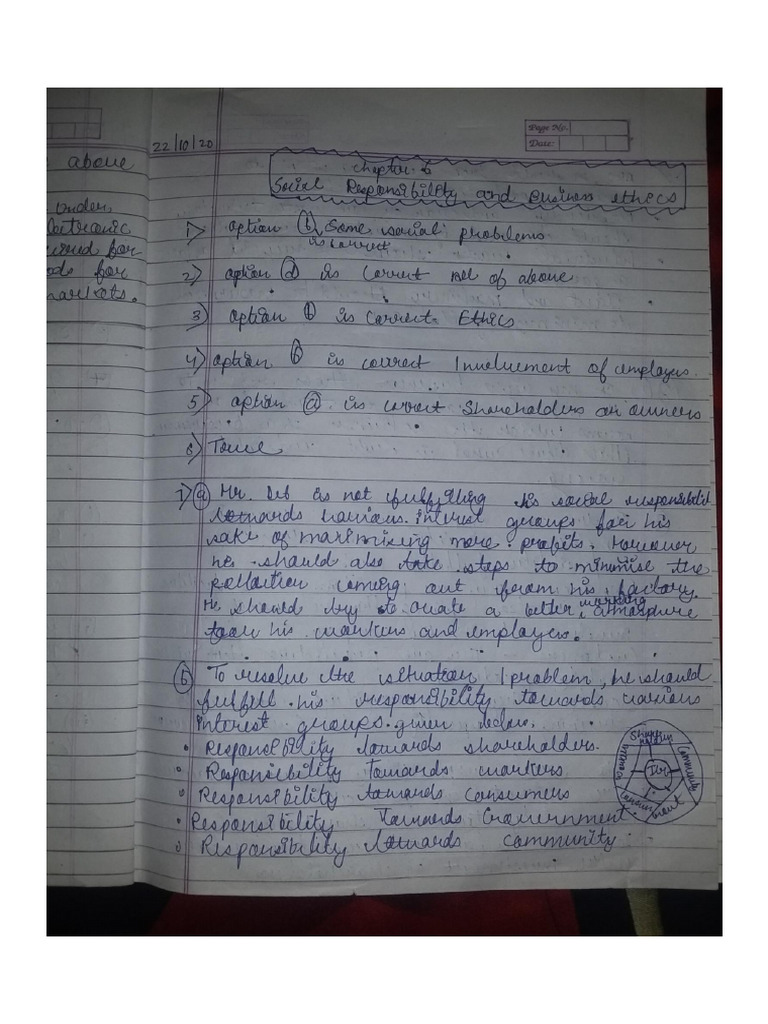 above
under
for
ods for
markets.
Page No.
Date:
22/10/20
Chapter: 6
Social Responsibility and Business ethics
1) option (b) Some social problems
is correct
2) option (d) is correct All of above
3) option (b) is correct Ethics
4) option (b) is correct Involvement of employees.
5) option (a) is correct Shareholders or owners
6) True
7) (a) Mr. Deb is not fulfilling his social responsibility
towards various interest groups for his
sake of maximising more profits. However
he should also take steps to minimise the
pollution coming out from his factory.
He should try to create a better working atmospure
for his workers and employees.
(b) To resolve the situation / problem, he should
fulfill his responsibility towards various
interest groups given below.
• Responsibility towards shareholders.
• Responsibility towards workers
• Responsibility towards consumers
• Responsibility Towards Government.
• Responsibility towards community
Community